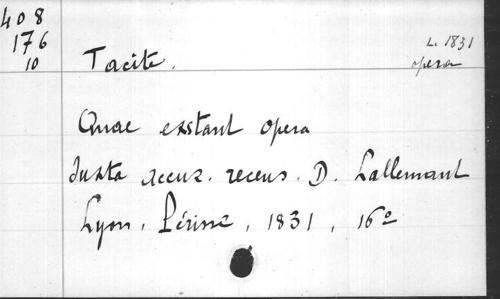 408
176
10
L. 1831
opera
Tacite.
Quae exstant opera
Juxta accur. recens. D. Lallemant
Lyon, Périsse, 1831, 16º